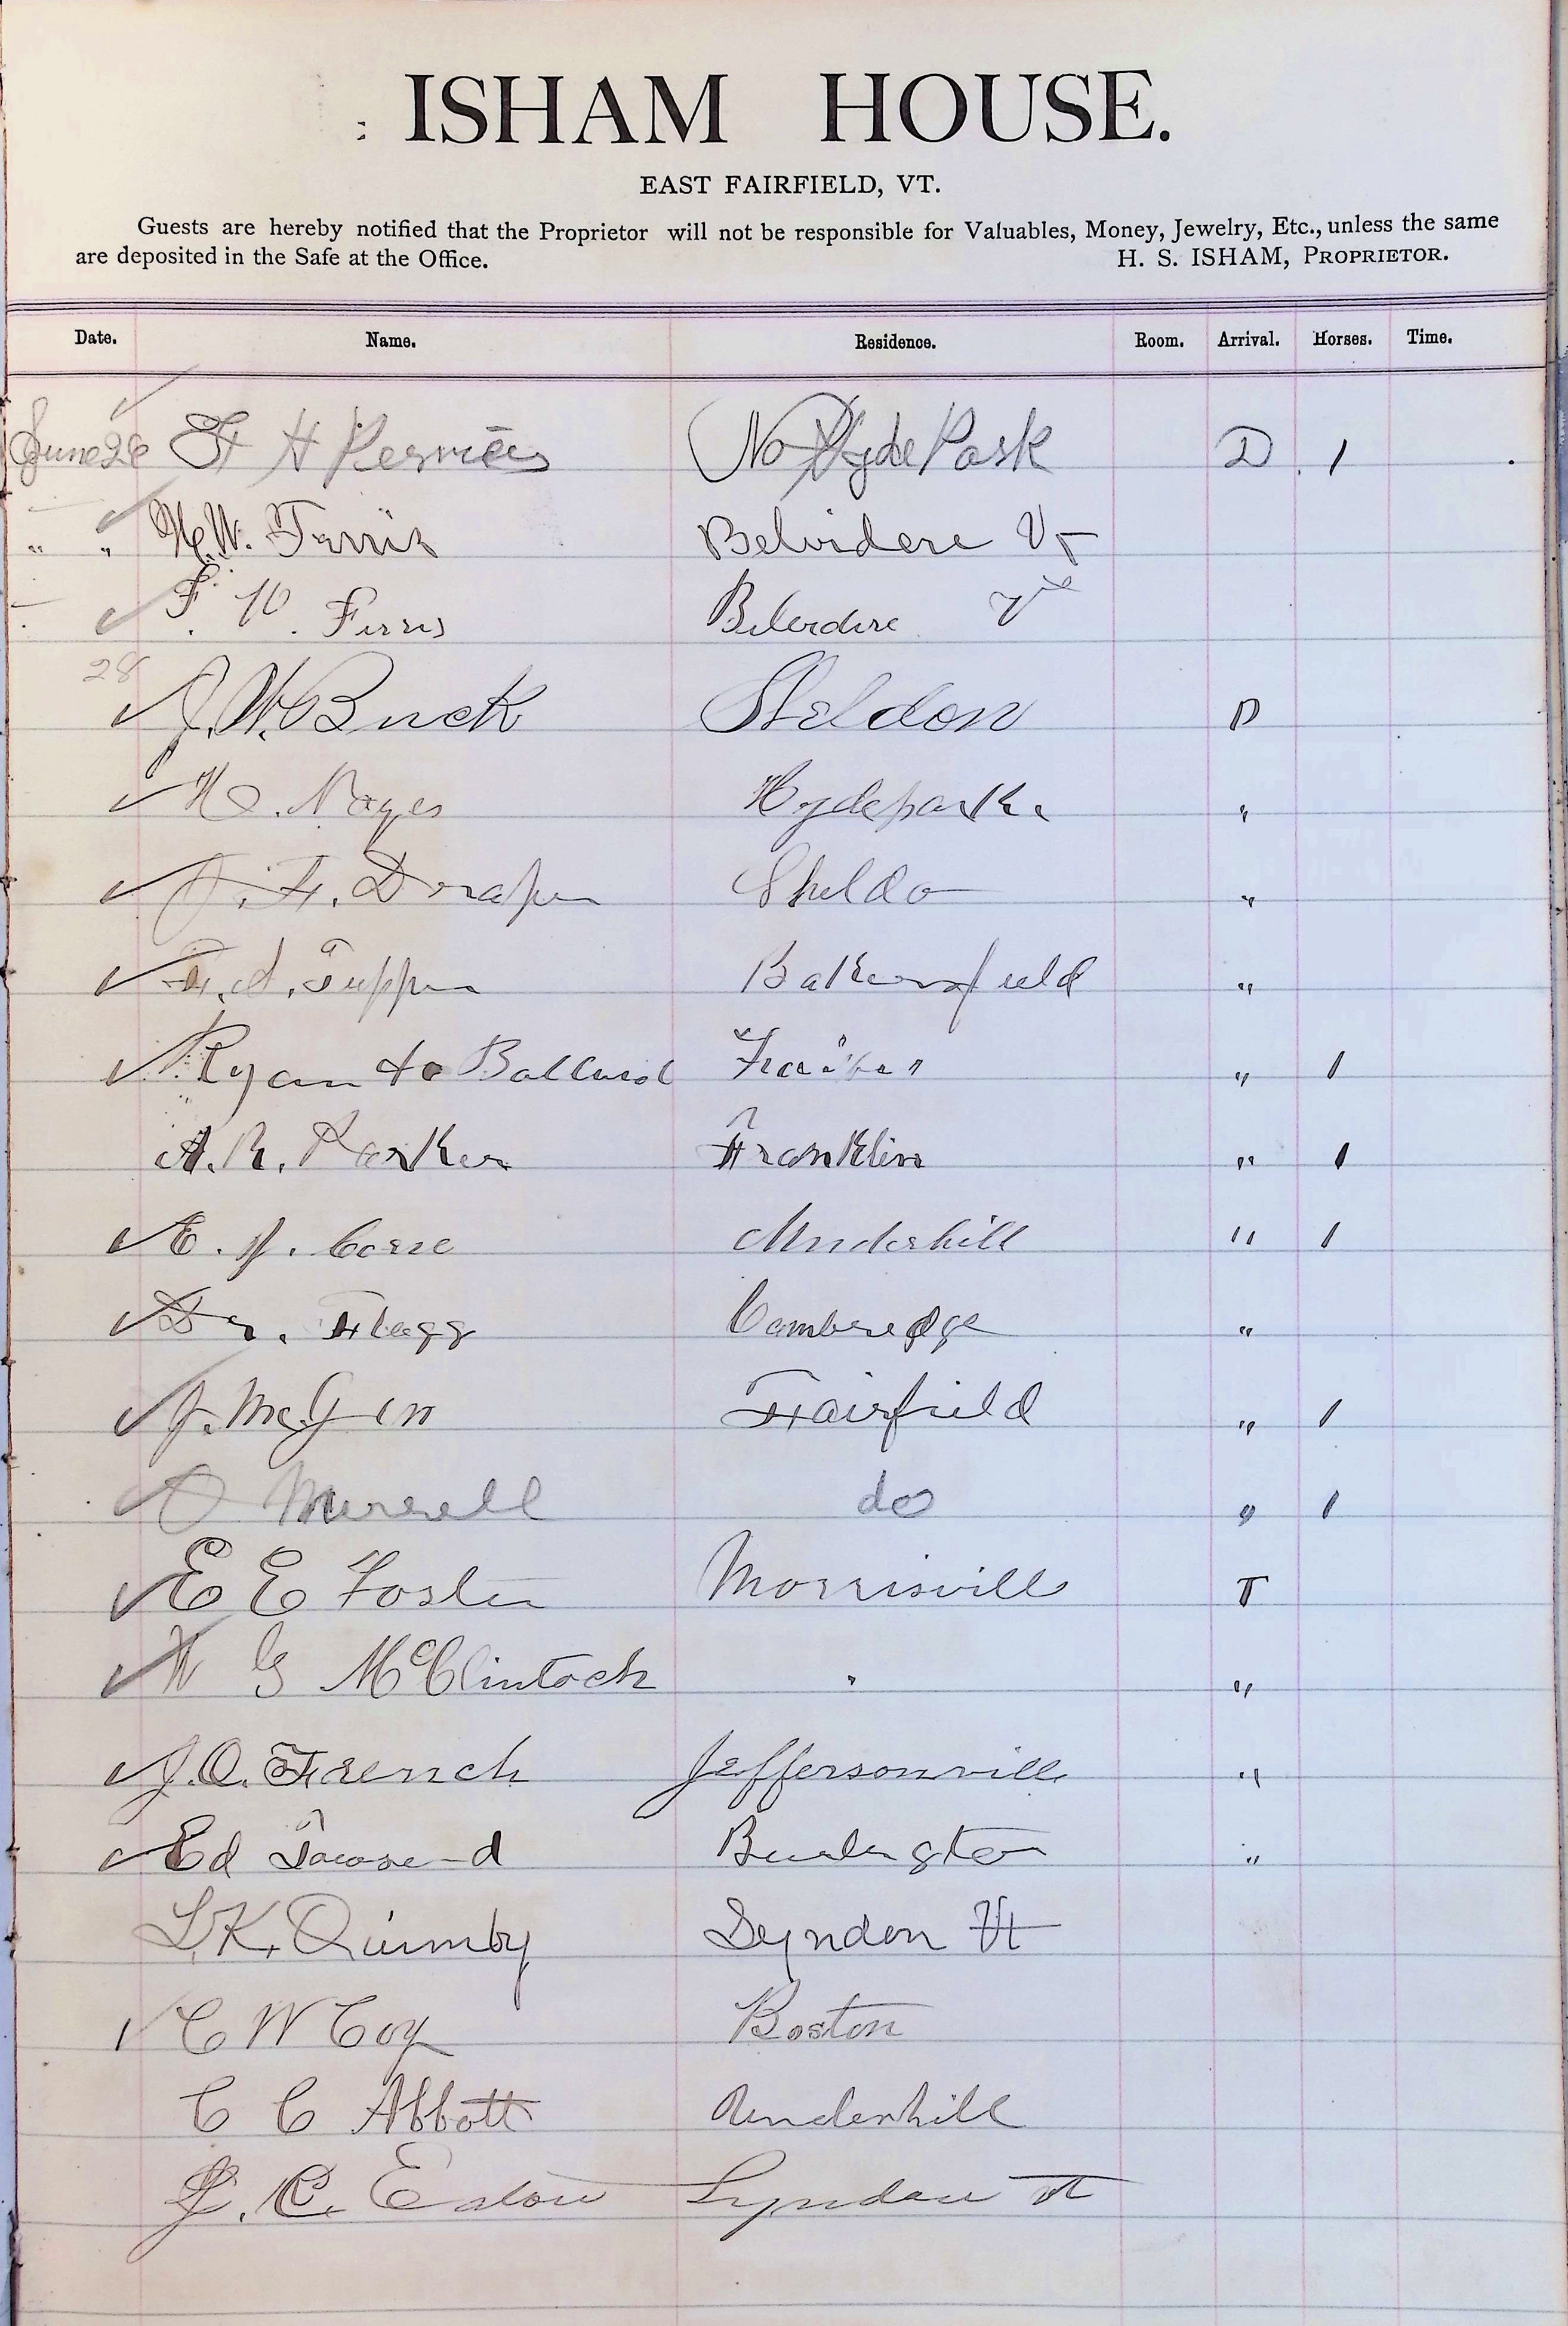 ISHAM HOUSE.
EAST FAIRFIELD, VT.
Guests are hereby notified that the Proprietor will not be responsible for Valuables, Money, Jewelry, Etc., unless the same
are deposited in the Safe at the Office. H. S. ISHAM, PROPRIETOR.
Date. Name. Residence. Room. Arrival. Horses. Time.
June 26 F H No Hyde Park D 1
" " H.W. Ferris Belvidere Vt
F. H. Ferris Belverdire Vt
28 J. W. Buck Sheldon D
H. Noyes Hydepark "
J. F. Draper Sheldon "
F. A. Tupper Bakersfield "
Ryan to Ballard " 1
A. R. Parker Franklin " 1
E. J. Corse Underhill " 1
Dr. Flagg Cambredge "
J. McGinn Fairfield " 1
O Merrell do " 1
E E Foster Morrisville T
W G McClintock " "
J. O. French Jeffersonville "
Ed Towsend Burlington "
L. K. Quimby Lyndon Vt
C W Coy Boston
C C Abbott Underhill
J. C. Eaton Lyndon Vt